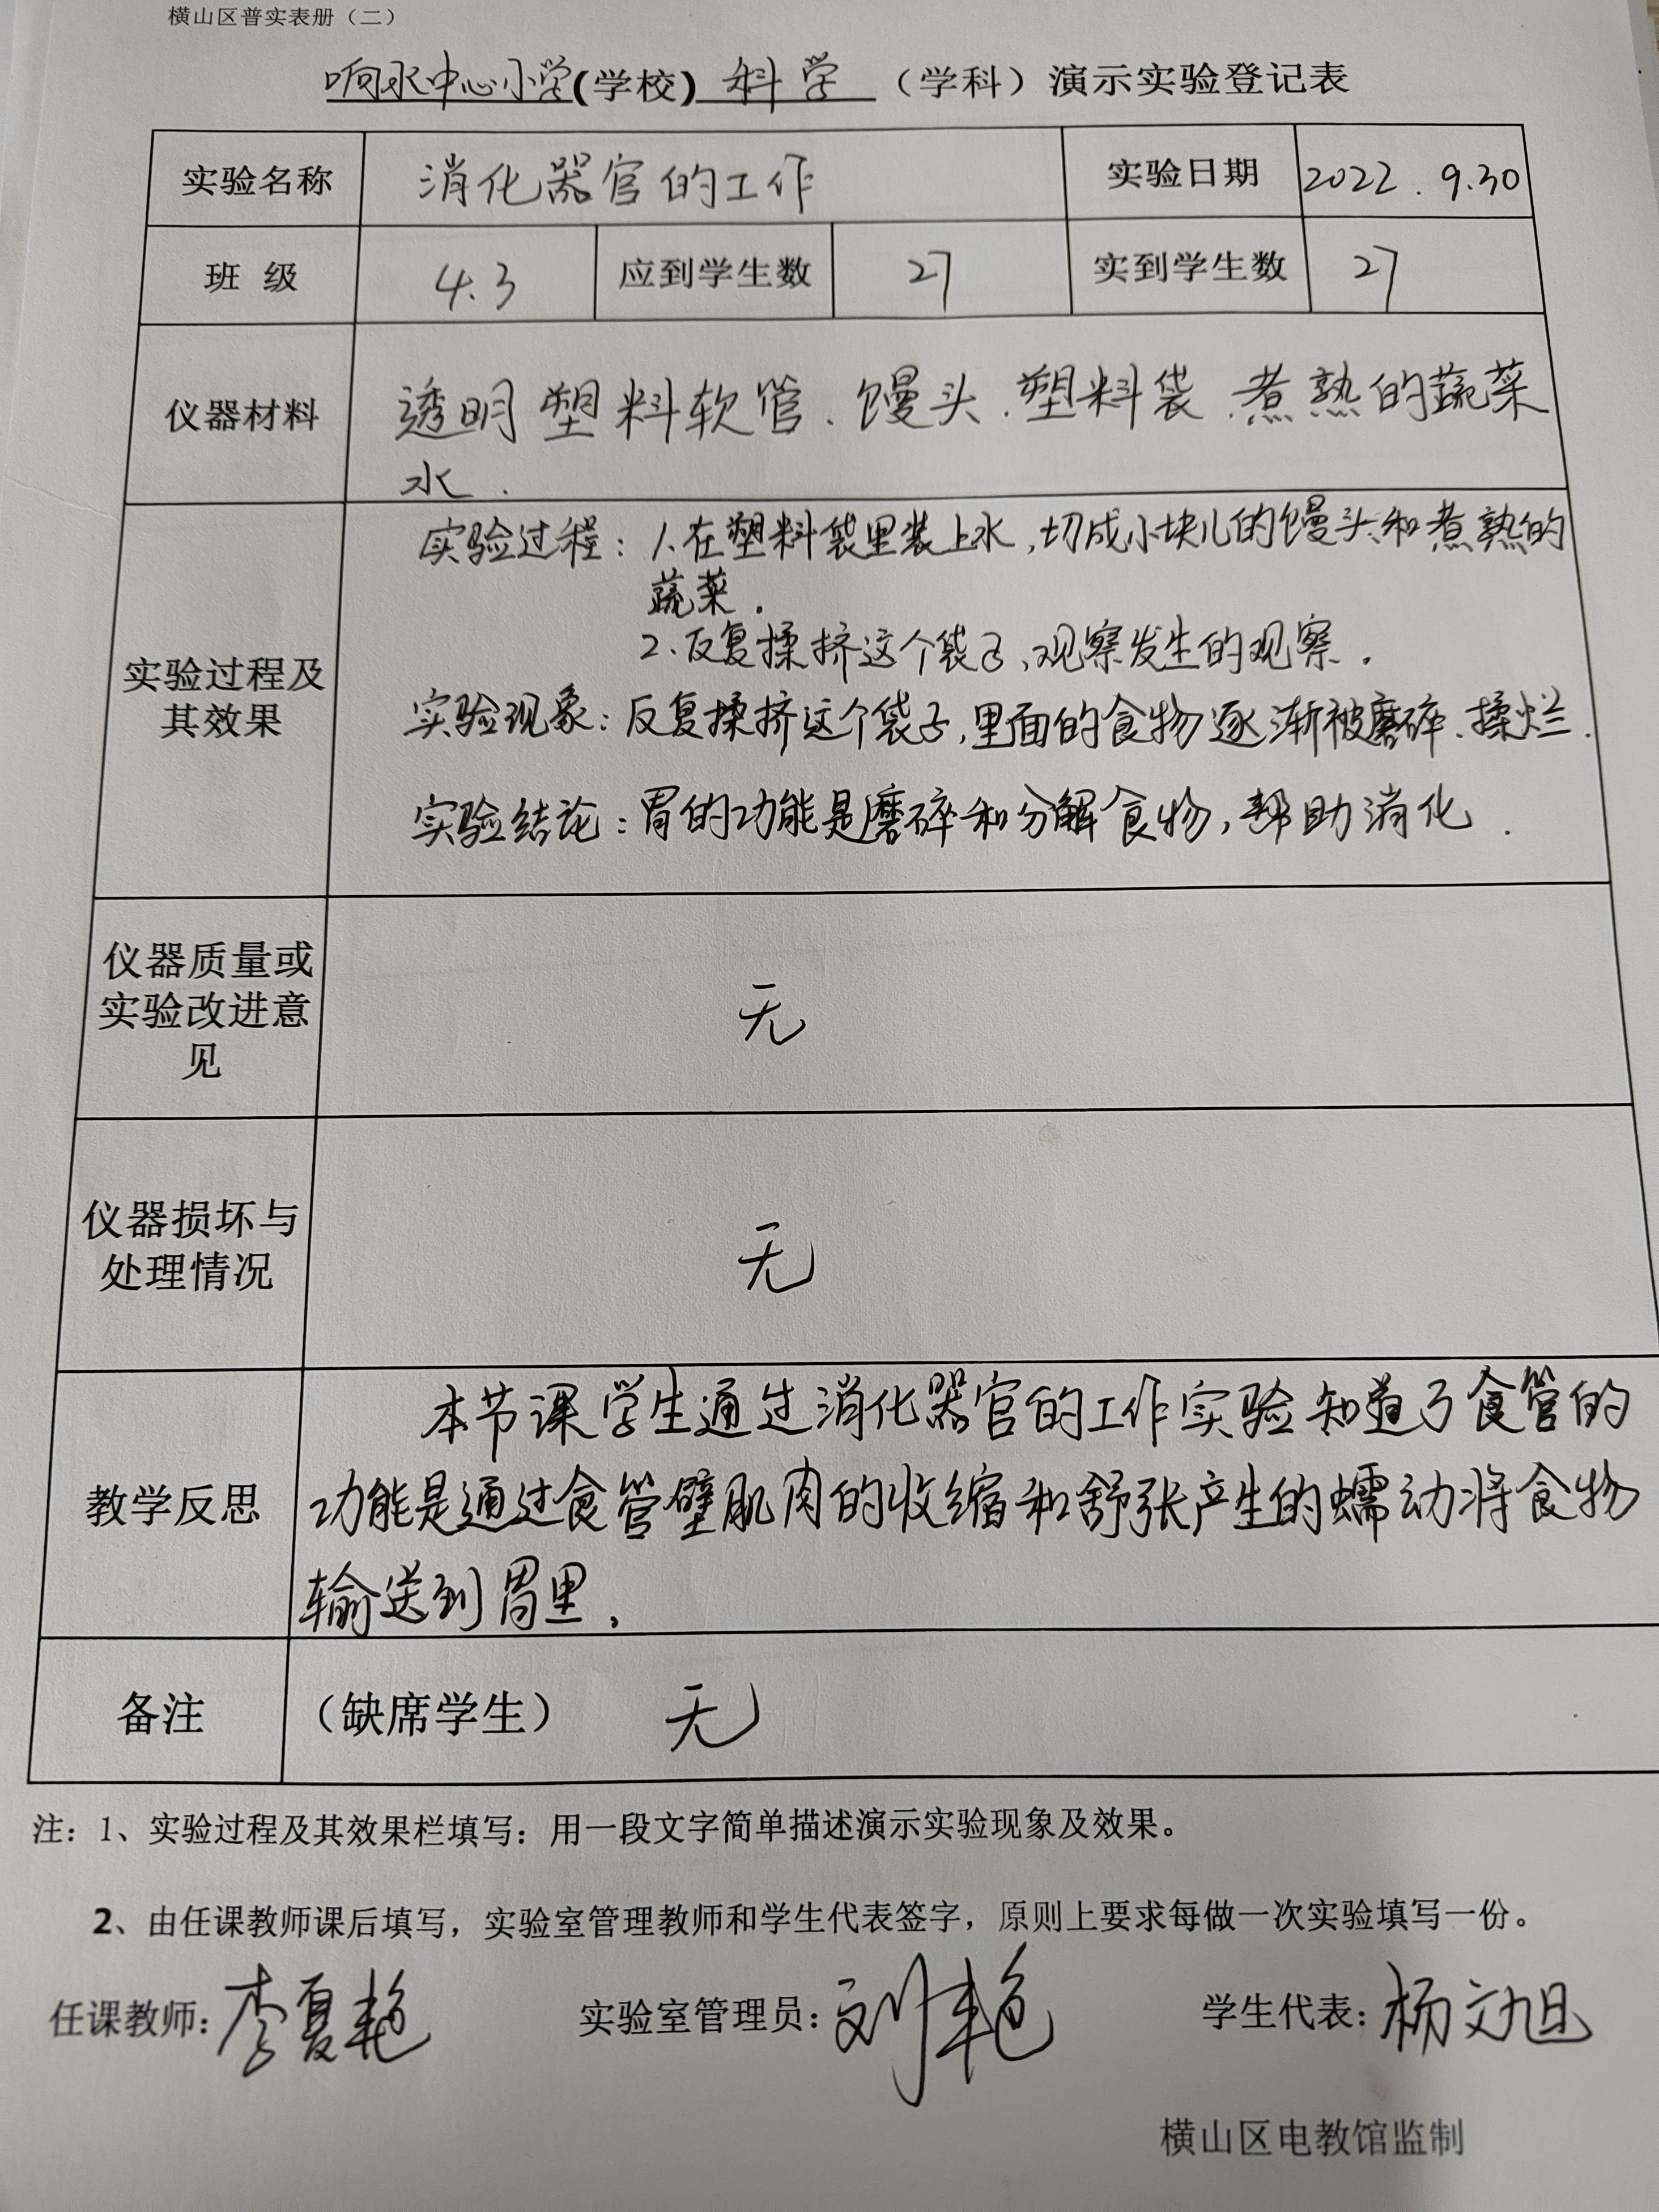 横山区普实表册（二）
响水中心小学(学校) 科学 （学科）演示实验登记表
实验名称 消化器官的工作 实验日期 2022.9.30
班 级 4.3 应到学生数 27 实到学生数 27
仪器材料 透明塑料软管、馒头、塑料袋、煮熟的蔬菜
水.
实验过程：1.在塑料袋里装上水,切成小块儿的馒头和煮熟的
蔬菜.
2.反复揉挤这个袋子,观察发生的观察.
实验过程及
其效果
实验现象：反复揉挤这个袋子,里面的食物逐渐被磨碎、揉烂.
实验结论：胃的功能是磨碎和分解食物,帮助消化.
仪器质量或
实验改进意
见
无
仪器损坏与
处理情况
无
教学反思
本节课学生通过消化器官的工作实验知道了食管的
功能是通过食管壁肌肉的收缩和舒张产生的蠕动将食物
输送到胃里.
备注 （缺席学生） 无
注：1、实验过程及其效果栏填写：用一段文字简单描述演示实验现象及效果。
2、由任课教师课后填写，实验室管理教师和学生代表签字，原则上要求每做一次实验填写一份。
任课教师：李夏艳 实验室管理员：刘艳 学生代表：杨文旭
横山区电教馆监制